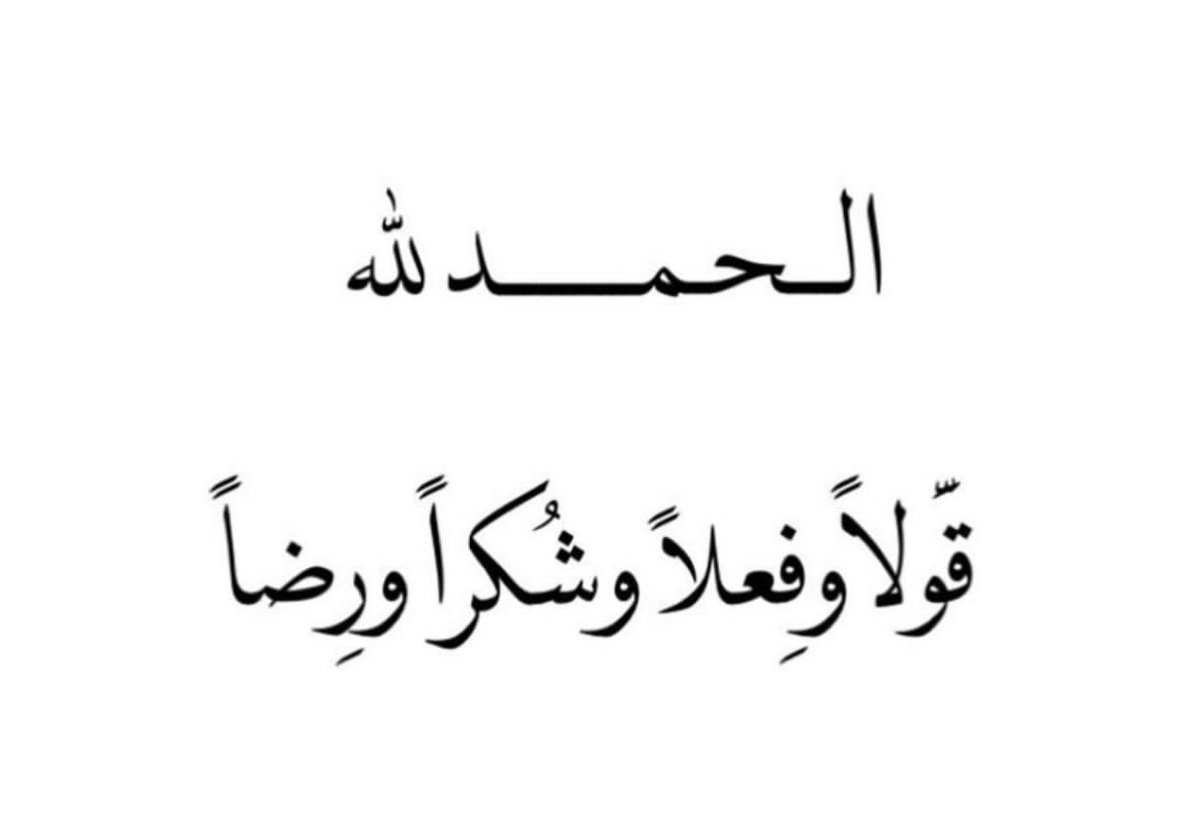 الـحمــــدلله
قوّلاً وفِعلاً وشُكراً ورِضاً